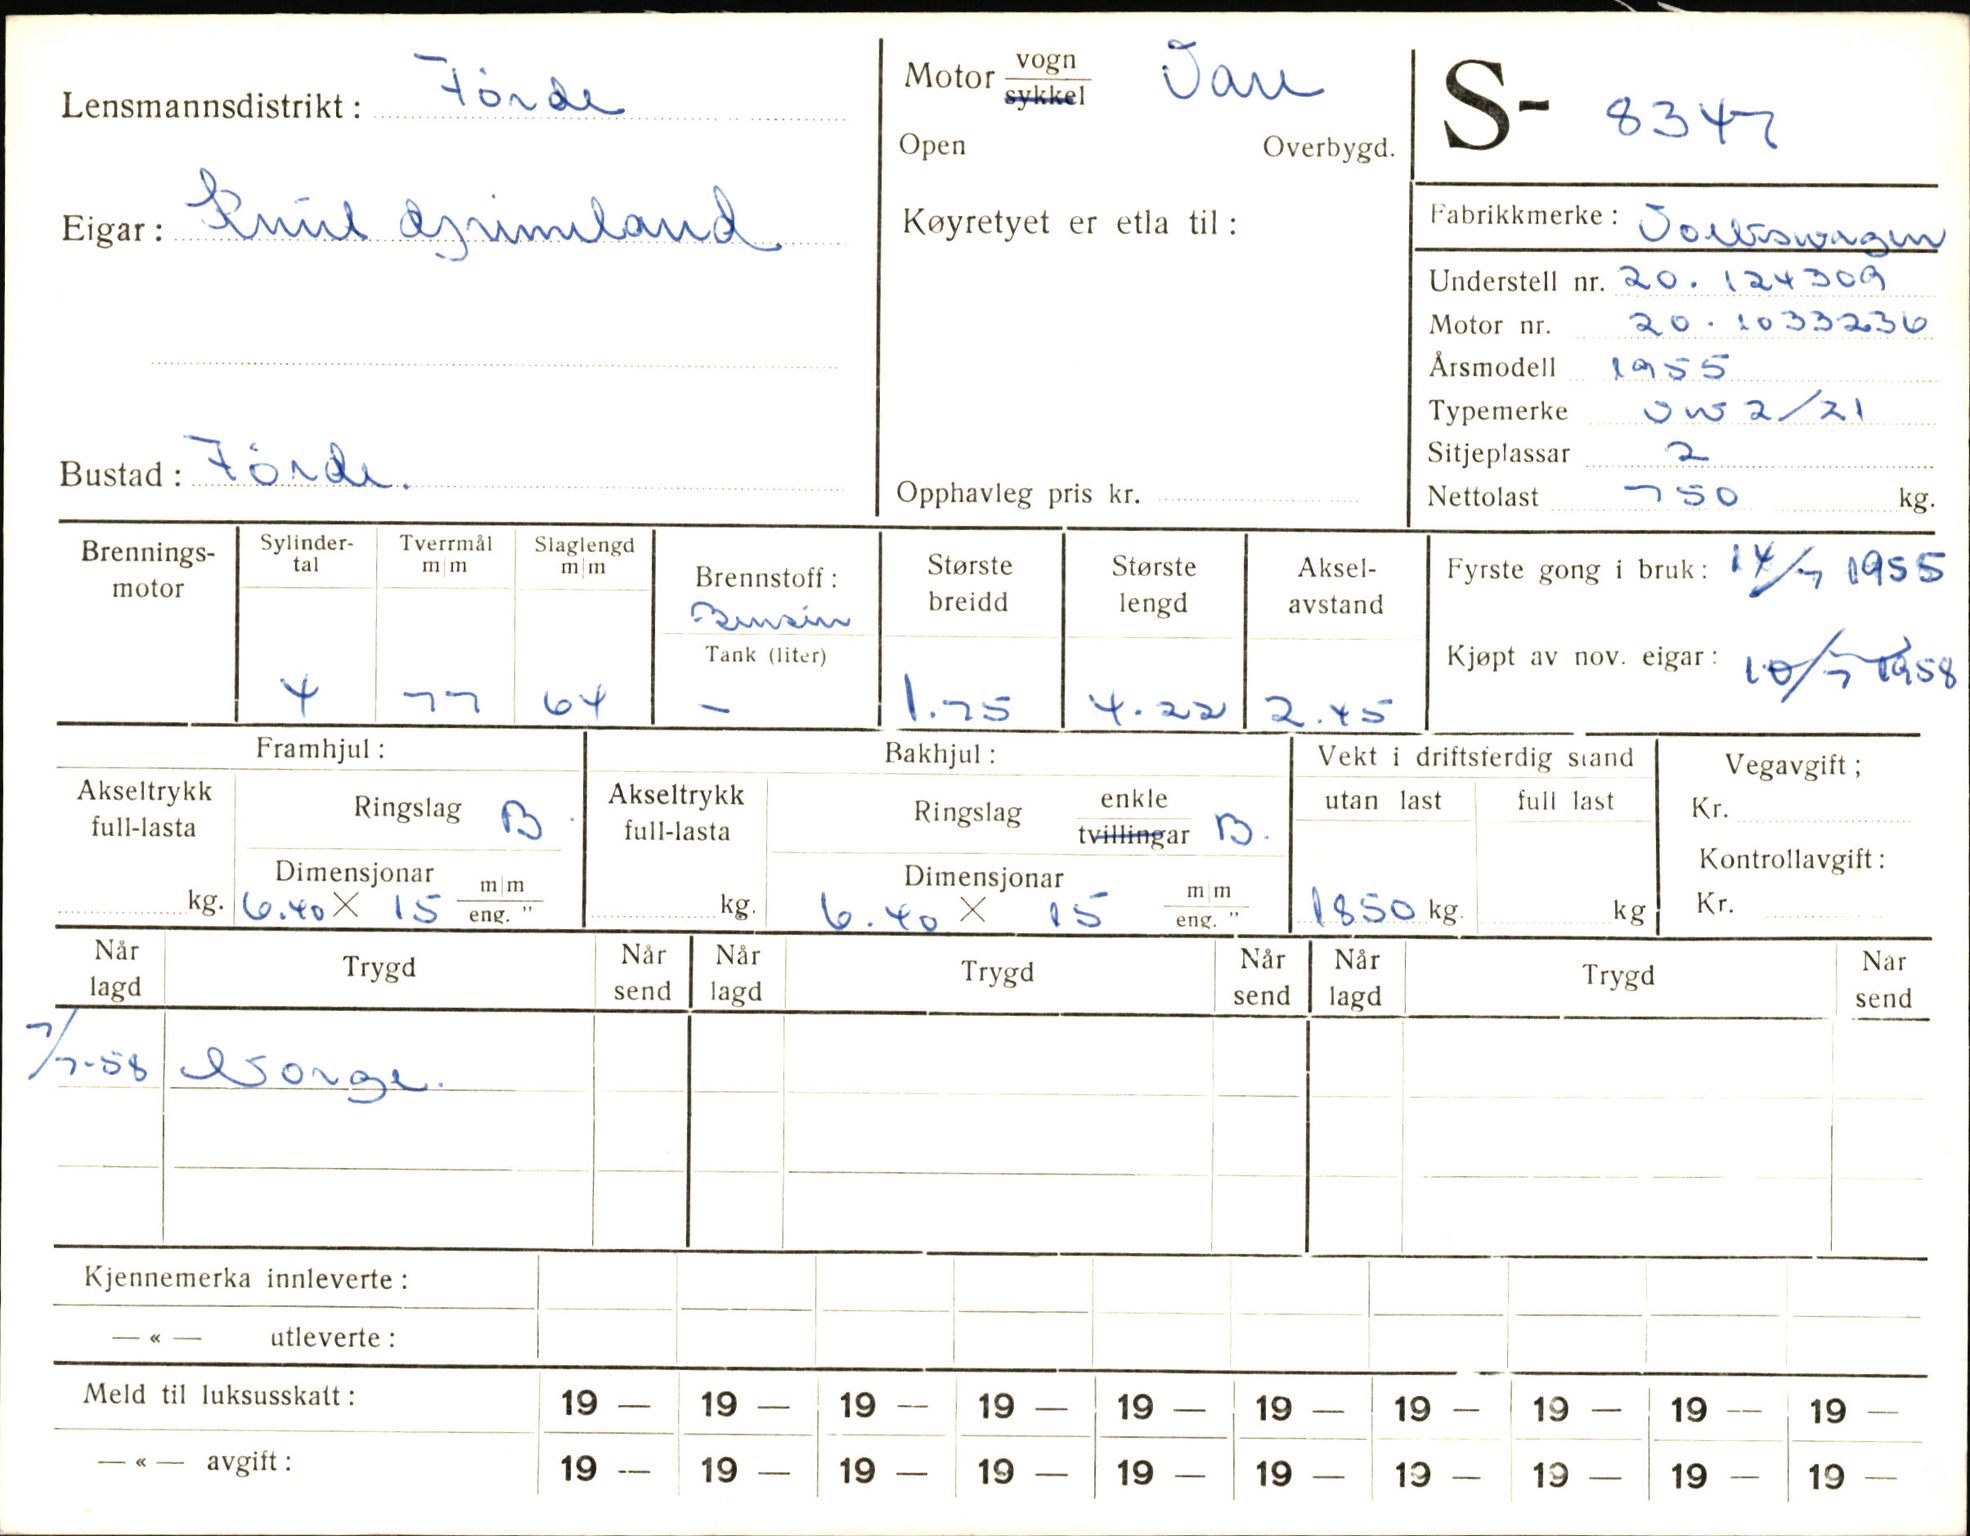 Lensmannsdistrikt: Förde
Eigar: Knut Grimeland
Bustad: Förde.
Motor vogn Vare
sykkel
Open Overbygd.
Køyretyet er etla til:
Opphavleg pris kr.
S- 8347
Fabrikkmerke: Volkswagen
Understell nr. 20.124309
Motor nr. 20.1033236
Årsmodell 1955
Typemerke VW 2/21
Sitjeplassar 2
Nettolast 750 kg.
Brennings-
motor
Sylinder-
tal
4
Tverrmål
m|m
77
Slaglengd
m|m
64
Brennstoff:
Bensin
Tank (liter)
-
Største
breidd
1.75
Største
lengd
4.22
Aksel-
avstand
2.45
Fyrste gong i bruk: 14/7 1955
Kjøpt av nov. eigar: 10/7 1958
Framhjul:
Akseltrykk
full-lasta
kg.
Ringslag B.
Dimensjonar m|m
6.40 X 15 eng. "
Bakhjul:
Akseltrykk
full-lasta
kg.
Ringslag enkle
tvillingar B.
Dimensjonar m|m
6.40 X 15 eng. "
Vekt i driftsferdig stand
utan last full last
1850 kg. kg
Vegavgift;
Kr.
Kontrollavgift:
Kr.
Når
lagd Trygd Når
send Når
lagd Trygd Når
send Når
lagd Trygd Når
send
7/7-58 Norge.
Kjennemerka innleverte:
— « — utleverte:
Meld til luksusskatt: 19 — 19 — 19 — 19 — 19 — 19 — 19 — 19 — 19 — 19 —
— « — avgift: 19 — 19 — 19 — 19 — 19 — 19 — 19 — 19 — 19 — 19 —